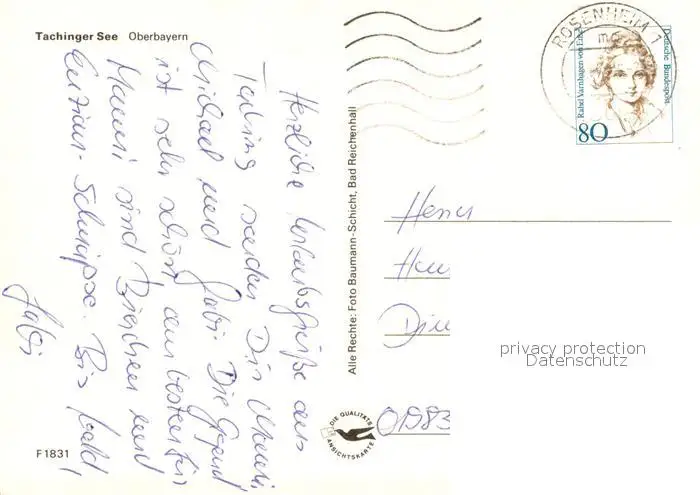 Tachinger See Oberbayern
Herzliche Urlaubsgrüße aus
Taching senden Dir Mausi
Michael und Gabi. Die Gegend
ist sehr schön am besten für
Mausi sind Bierchen und
Enzian-Schnäpse. Bis bald,
Gabi
F1831
Alle Rechte: Foto Baumann-Schicht, Bad Reichenhall
DIE QUALITÄTS
ANSICHTSKARTE
ROSENHEIM 1
Rahel Varnhagen von Ense
Deutsche Bundespost
80
Herrn
01983
privacy protection
Datenschutz